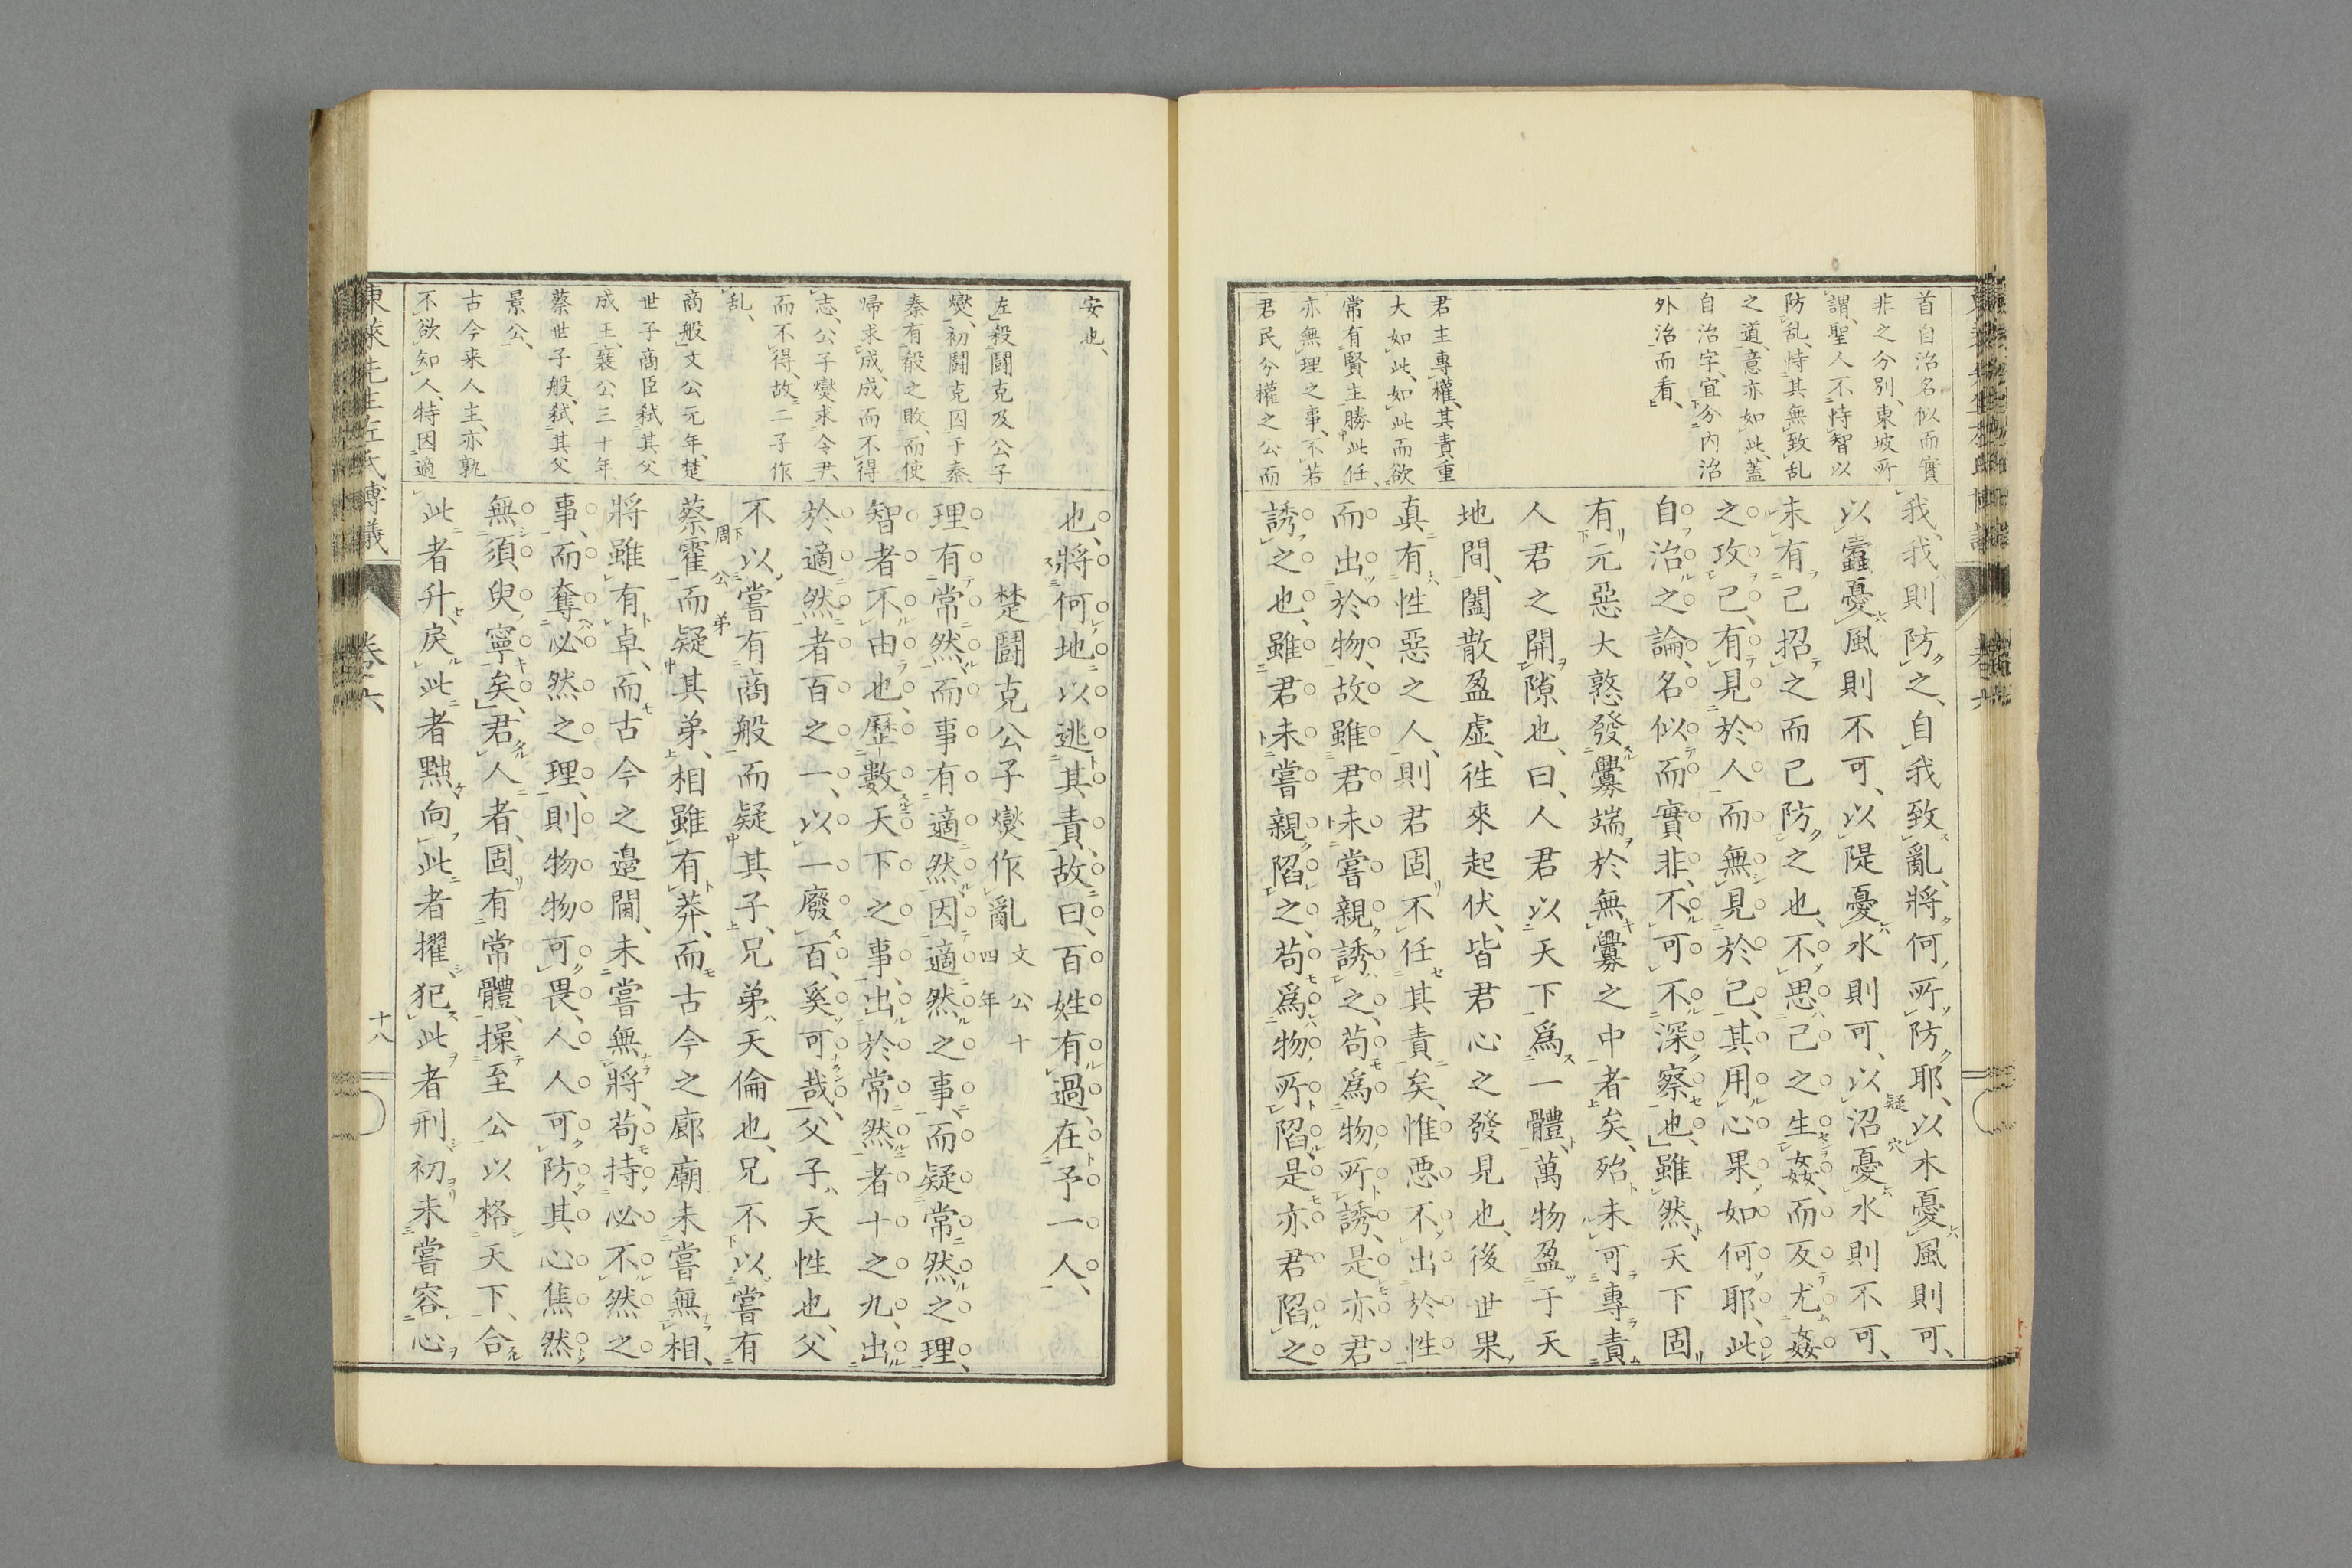 首自治名似而實
非之分別、東坡所
謂、聖人不恃智以
防乱、恃其無致乱
之道、意亦如此、蓋
自治字、宜分内治
外治而看、
君主專權、其責重
大如此、如此而欲
常有賢主勝此任、
亦無理之事、不若
君民分權之公而
我、我則防之、自我致亂、將何所防耶、以木憂風則可、
以蠹憂風則不可、以隄憂水則可、以沼憂水則不可、
未有己招之而己防之也、不思己之生姦、而反尤姦
之攻己、有見於人而無見於己、其用心果如何耶、此
自治之論、名似而實非、不可不深察也、雖然、天下固
有元惡大憝發釁端於無釁之中者矣、殆未可專責
人君之開隙也、曰、人君以天下爲一體、萬物盈于天
地間、闔散盈虚、徃來起伏、皆君心之發見也、後世果
真有性惡之人、則君固不任其責矣、惟惡不出於性
而出於物、故雖君未嘗親誘之、苟爲物所誘、是亦君
誘之也、雖君未嘗親陷之、苟爲物所陷、是亦君陷之
安也、
左、殺鬪克及公子
燮、初鬪克囚于秦
秦有殽之敗、而使
帰求成、成而不得
志、公子燮求令尹
而不得、故二子作
乱、
商般、文公元年、楚
世子商臣弑其父
成王、襄公三十年
蔡世子般、弑其父
景公、
古今来人主、亦孰
不欲知人、特因適
也、將何地以逃其責、故曰、百姓有過、在予一人、
楚鬪克公子燮作亂 文公十四年
理有常然、而事有適然、因適然之事、而疑常然之理、
智者不由也、歷數天下之事、出於常然者十之九、出
於適然者百之一、以一廢百、奚可哉、父子、天性也、父
不以嘗有商般而疑其子、兄弟、天倫也、兄不以嘗有
蔡霍而疑其弟、相雖有莽、而古今之廊廟未嘗無相、
將雖有卓、而古今之邊閫、未嘗無將、苟持必不然之
事、而奪必然之理、則物物可畏、人人可防、其心焦然
無須臾寧矣、君人者、固有常體、操至公以格天下、合
此者升、戾此者黜、向此者擢、犯此者刑、初未嘗容心
東萊先生左氏博議
卷六
十八